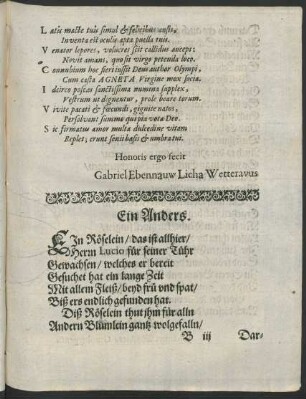 L atus macte tuis simul & felicibus ausis,
Inventa est oculis apta puella tuis.
V enator lepores, volucres scit callidus auceps:
Novit amans, quo sit virgo petenda loco.
C onnubium hoc sterit usset Deus author Olympi,
Cum casta AGNETA Virgine mox socia.
I dcirco positas sanctissima numina supplex,
Vestrum ut dignentur, prole beare torum.
V ivite pacati & fœcundi, gignite natos,
Persolvant summo qui pia vota Deo.
S ic firmatus amor multa dulcedine vitam
Replet; erunt sonii basis & umbratus.
Honoris ergo fecit
Gabriel Ebennauw Licha Wetteravus
Ein Anders.
EIn Röselein/ das ist allhier/
Herrn Lucio für seiner Tühr
Gewachsen/ welches er bereit
Gesuchet hat ein lange Zeit
Mit allem Fleiß/ beyd frü vnd spat/
Biß ers endlich gefunden hat.
Diß Röselein thut jhm für alln
Andern Blümlein gantz wolgefalln/
B iij Dar-